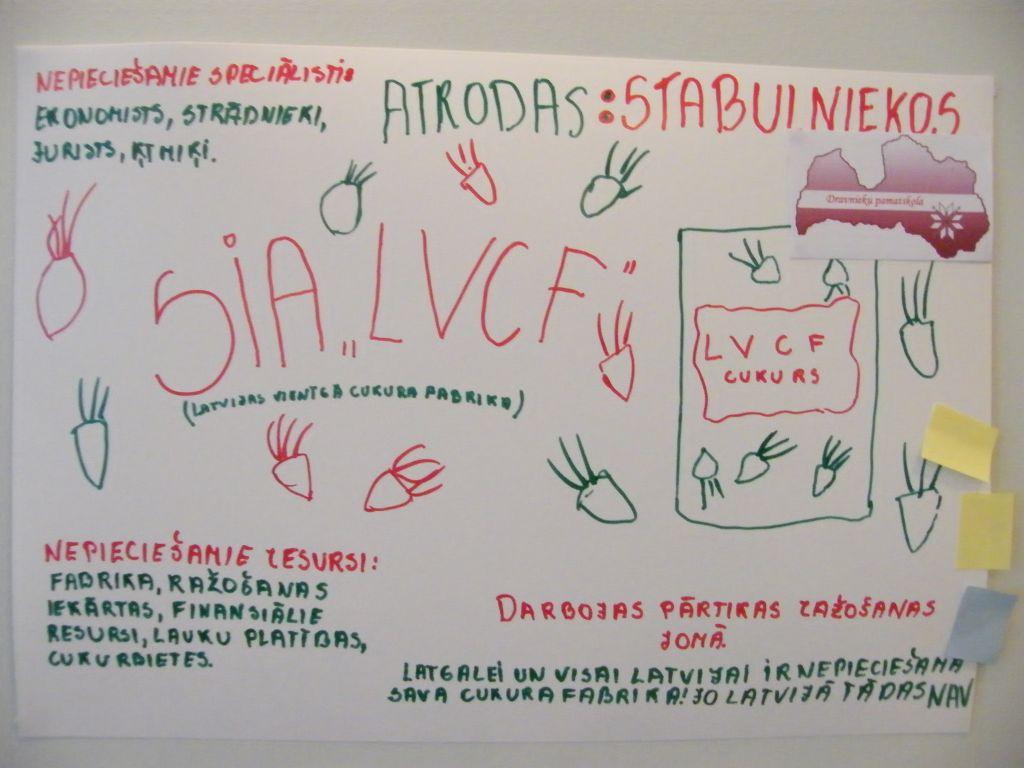 NEPIECIEŠAMIE SPECIĀLISTI:
EKONOMISTS, STRĀDNIEKI,
JURISTS, ĶĪMIĶI.
ATRODAS: STABULNIEKOS
Dravnieku pamatskola
SIA „LVCF"
(LATVIJAS VIENĪGĀ CUKURA FABRIKA)
LVCF
CUKURS
NEPIECIEŠAMIE RESURSI:
FABRIKA, RAŽOŠANAS
IEKĀRTAS, FINANSIĀLIE
RESURSI, LAUKU PLATĪBAS,
CUKURBIETES.
DARBOJAS PĀRTIKAS RAŽOŠANAS
JOMĀ.
LATGALEI UN VISAI LATVIJAI IR NEPIECIEŠAMA
SAVA CUKURA FABRIKA! JO LATVIJĀ TĀDAS NAV